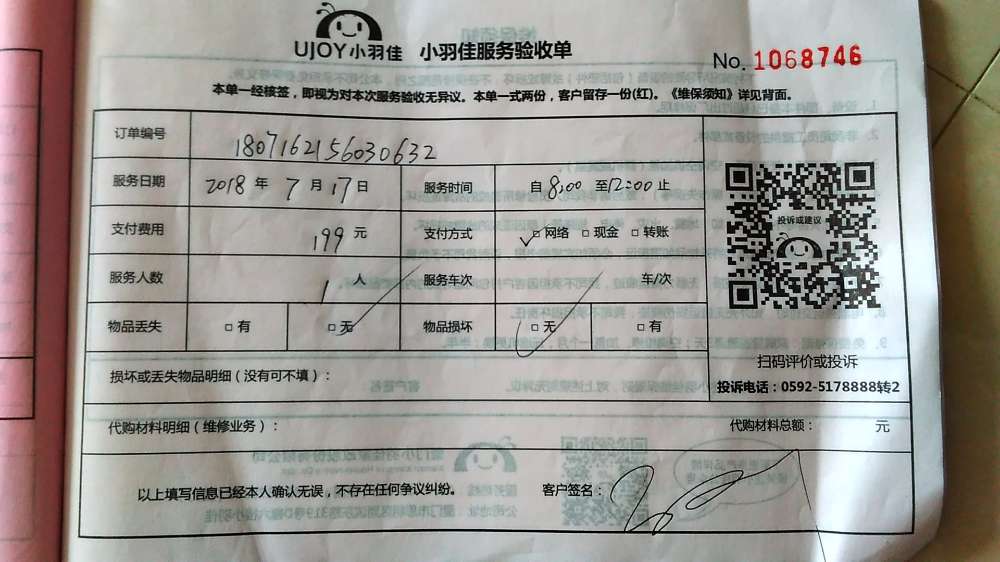 UJOY小羽佳 小羽佳服务验收单
No. 1068746
本单一经核签，即视为对本次服务验收无异议。本单一式两份，客户留存一份(红)。《维保须知》详见背面。
订单编号 1807162156030632
服务日期 2018 年 7 月 17 日 服务时间 自 8:00 至 12:00 止
支付费用 199 元 支付方式 ✓□ 网络 □ 现金 □ 转账
服务人数 1 人 服务车次 车/次
物品丢失 □ 有 □ 无 物品损坏 □ 无 □ 有
投诉或建议
扫码评价或投诉
投诉电话：0592-5178888转2
损坏或丢失物品明细（没有可不填）：
代购材料明细（维修业务）： 代购材料总额： 元
以上填写信息已经本人确认无误，不存在任何争议纠纷。 客户签名：